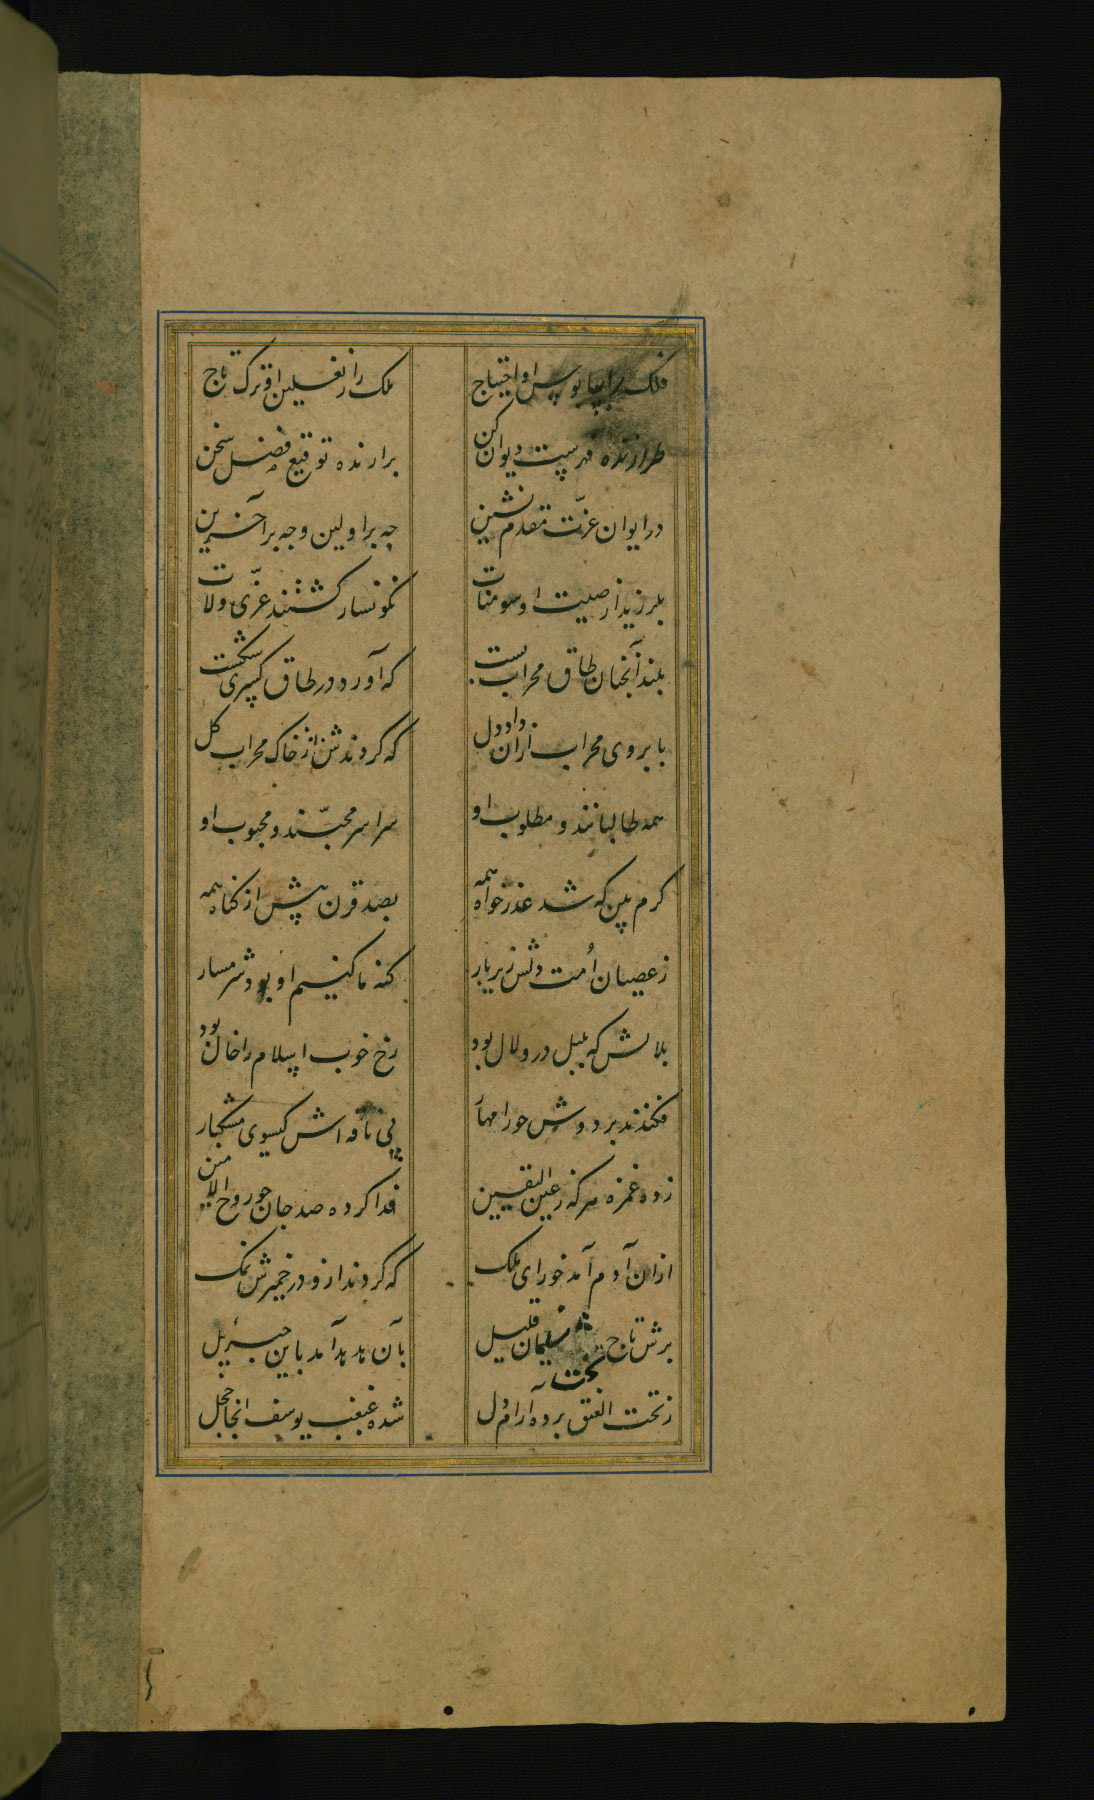 فلک را بپابوس او احتیاج ملک را ز نعلین او ترک تاج
طرازنده فهرست دیوان کن برارنده توقیع فضل سخن
در ایوان عزّت مقدم نشین چه بر اولین و چه بر آخرین
بلرزید از صیت او سومنات نگونسار گشتند عزّی و لات
بلند آنچنان طاق محراب بست که آورد در طاق کسری شکست
بابروی محراب ازان داد دل که کردندش از خاک محراب گل
همه طالبانند و مطلوب او سراسر محبّند و محبوب او
کرم بین که شد عذرخواه همه بصد قرن پیش از گناه همه
ز عصیان اُمت دلش زیر بار گنه ما کنیم او بود شرمسار
بلالش که بلبل درو لال بود رخ خوب اسلام را خال بود
فکندند بر دوش حورا مهار پی ناقه اش گیسوی مشکبار
زده غمزه نرگس عین الیقین فدا کرده صد جان چو روح الامین
ازان آدم آمد خورای ملک که کردند ازو در خمیرش نمک
برش تاج سلیمان قلیل بآن هدهد آمد باین جبرئیل
ز تحت الغبق برده آرام دل شده غبغب یوسف انجا خجل